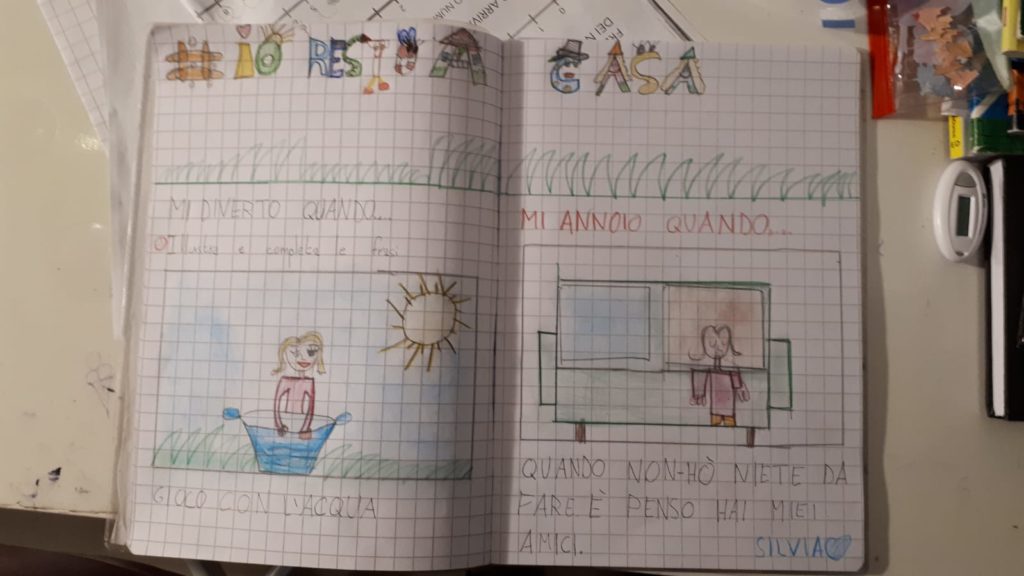 #IO RESTO A CASA
MI DIVERTO QUANDO...
Illustra e completa le frasi
GIOCO CON L'ACQUA
MI ANNOIO QUANDO...
QUANDO NON-HÒ NIETE DA
FARE È PENSO HAI MIEI
AMICI.
SILVIA